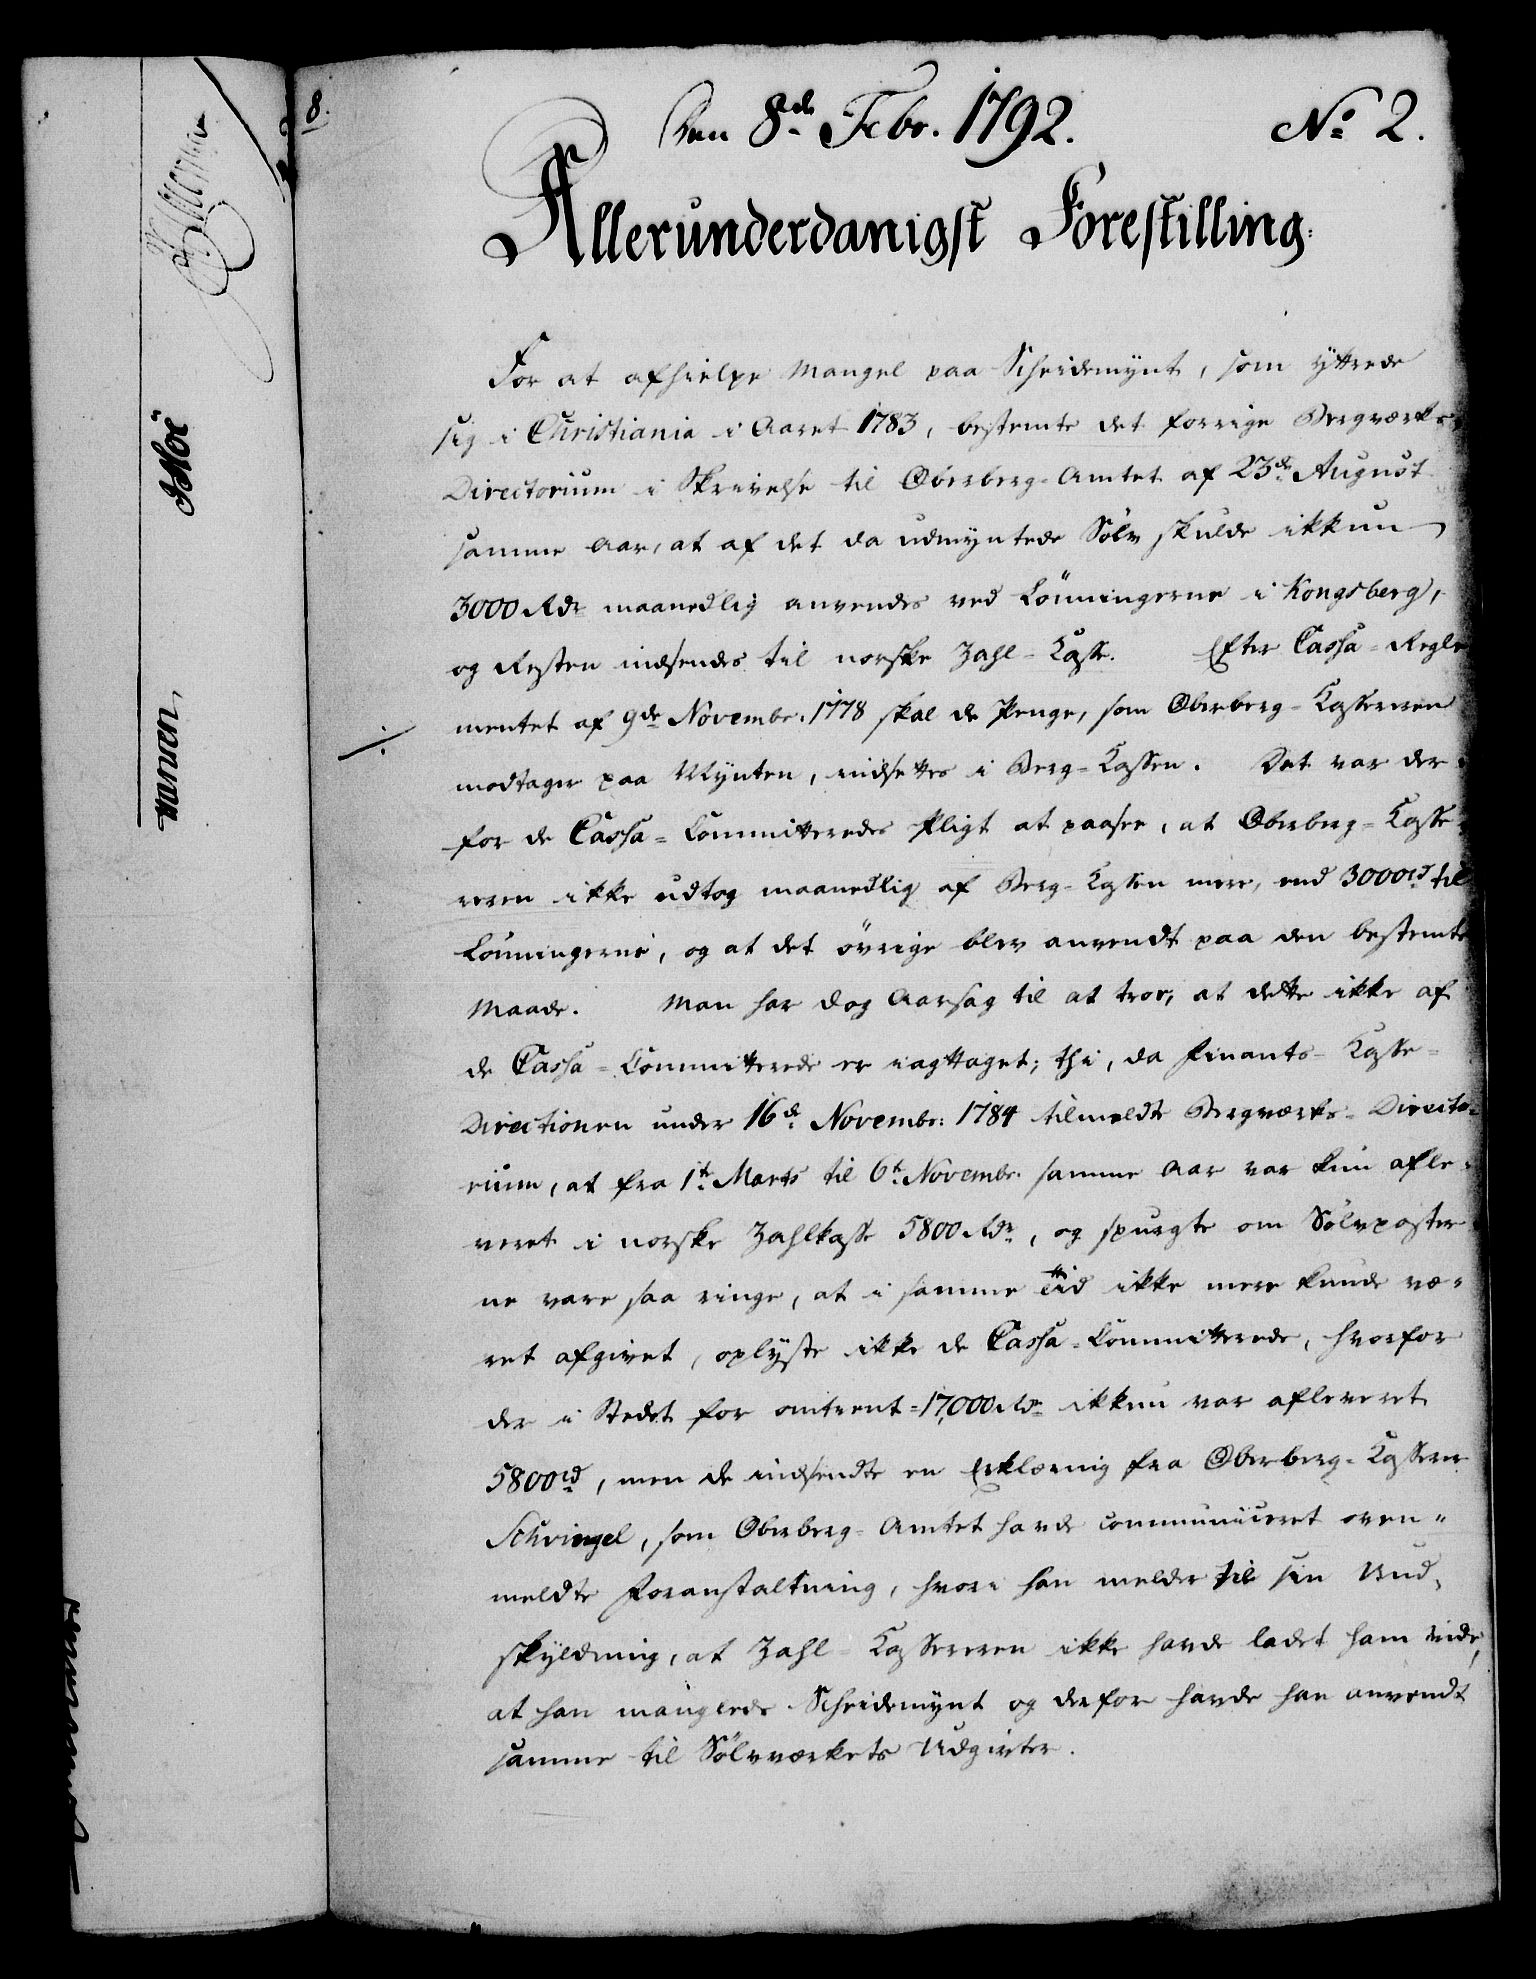 8.
Den 8de Febr. 1792. No 2.
Allerunderdanigst Forestilling.
For at afhielpe Mangel paa Scheidemynt, som yttrede
sig i Christiania i Aaret 1783, bestemte det forrige Bergværks
Directorium i Skrivelse til Oberberg-Amtet af 23de August
samme Aar, at af det da udmyntede Sølv skulde ikkun
3000 Rdr maanedlig anvendes ved Lønningerne i Kongsberg,
og Resten indsendes til norske Zahl-Kasse. Efter Cassa-Regle
mentet af 9de Novembr. 1778 skal de Penge, som Oberberg-Kassereren
modtager paa Mynten, indsettes i Berg-Kassen. Det var der
for de Cassa-Committeredes Pligt at paasee, at Oberberg-Kasse
reren ikke udtog maanedlig af Berg-Kassen mere, end 3000rd til
Lønningerne, og at det øvrige blev anvendt paa den bestemte
Maade. Man har dog Aarsag til at troe, at dette ikke af
de Cassa-Committerede er iagttaget; thi, da Finants-Kasse-
Directionen under 16de Novembr: 1784 tilmeldte Bergværks-Directo-
rium, at fra 1te Marts til 6te Novembr. samme Aar var kun afle-
veret i norske Zahlkasse 5800 Rdr, og spurgte om Sølvposter
ne vare saa ringe, at i samme Tid ikke mere kunde væ-
ret afgivet, oplyste ikke de Cassa-Committerede, hvorfor
der i Stedet for omtrent 17,000 Rdr ikkun var afleveret
5800rd, men de indsendte en Erklæring fra Oberberg-Kasserer
Schvingel, som Oberberg-Amtet havde communiceret oven-
meldte Foranstaltning, hvori han melder til sin Und-
skyldning, at Zahl-Kassereren ikke havde ladet ham vide,
at han manglede Scheidemynt og derfor havde han anvendt
samme til Sølvværkets Udgivter.